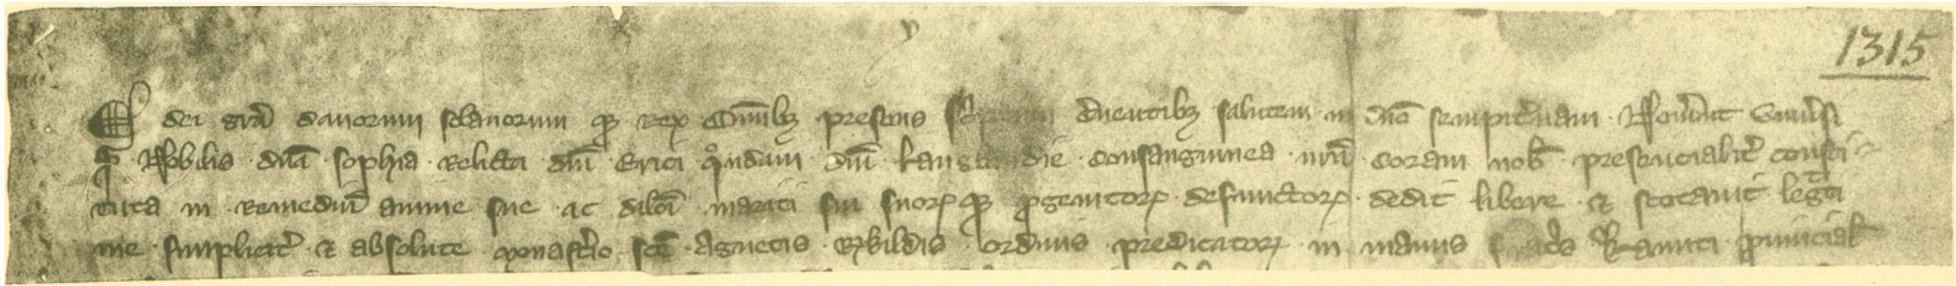 1315
E dei grā danorum sclauorum q₃ rex Omīb₃ presens scriptum c̄nentib₃ salutem in dn̄o sempit̄nam · Nou̅int Vniu̅si
q̄ · Nobilis · dn̄a · sophia · relicta · dn̄i · Erici · q̊ndam · dn̄i · langlandie · consanguinea · nr̄a · coram · nob̄ · presencialit̄ consti
tuta in · remediū anime sue · ac dilc̄i · mariti sui suoꝝ q₃ ꝓgenitoꝝ · defunctoꝝ · dedit libere · ⁊ scotauit legitti
me · simplicit̄ · ⁊ absolute monast̄io sc̄e · Agnetis · roskildis · ordinis · predicatoꝝ · in · manus Kanuti ꝓuincial̄